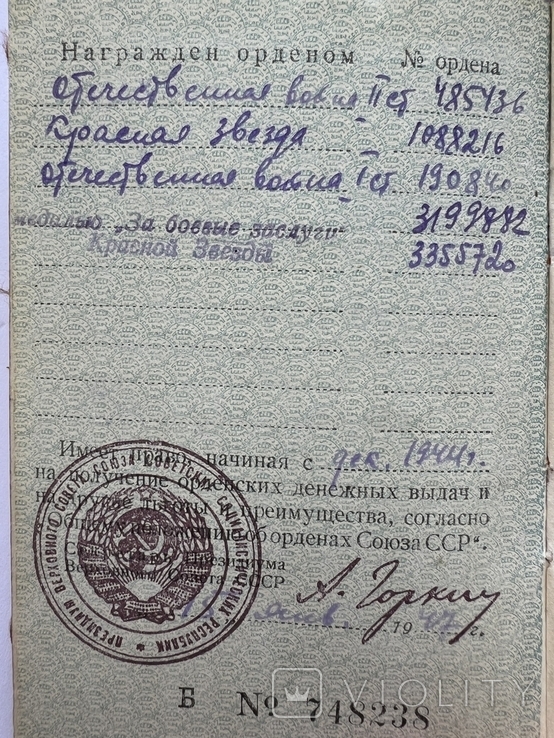 Награжден орденом № ордена
Отечественная война II ст 485436
Красная Звезда 1088216
Отечественная война I ст. 190840
медалью „За боевые заслуги“ 3199882
Красной Звезды 3355720
Имеет право, начиная с дек. 1944 г.
на получение орденских денежных выдач и
на другие льготы и преимущества, согласно
„Общему положению об орденах Союза ССР“.
Секретарь Президиума
Верховного Совета СССР
А. Горкин
15 янв. 1947 г.
ПРЕЗИДИУМ ВЕРХОВНОГО СОВЕТА СОЮЗА СОВЕТСКИХ СОЦИАЛИСТИЧЕСКИХ РЕСПУБЛИК
Б № 748238
VIOLITY